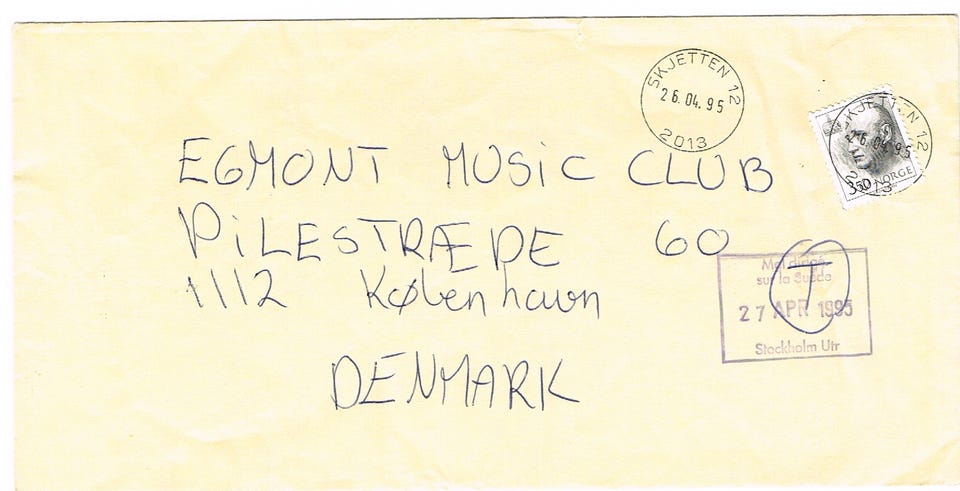 SKJETTEN 12
26.04.95
2013
SKJETTEN 12
26.04.95
2013
3.50 NORGE
EGMONT MUSiC CLUB
PiLESTRÆDE 60
1112 København
DENMARK
Mal dirigé
sur la Suède
27 APR 1995
Stockholm Utr
T